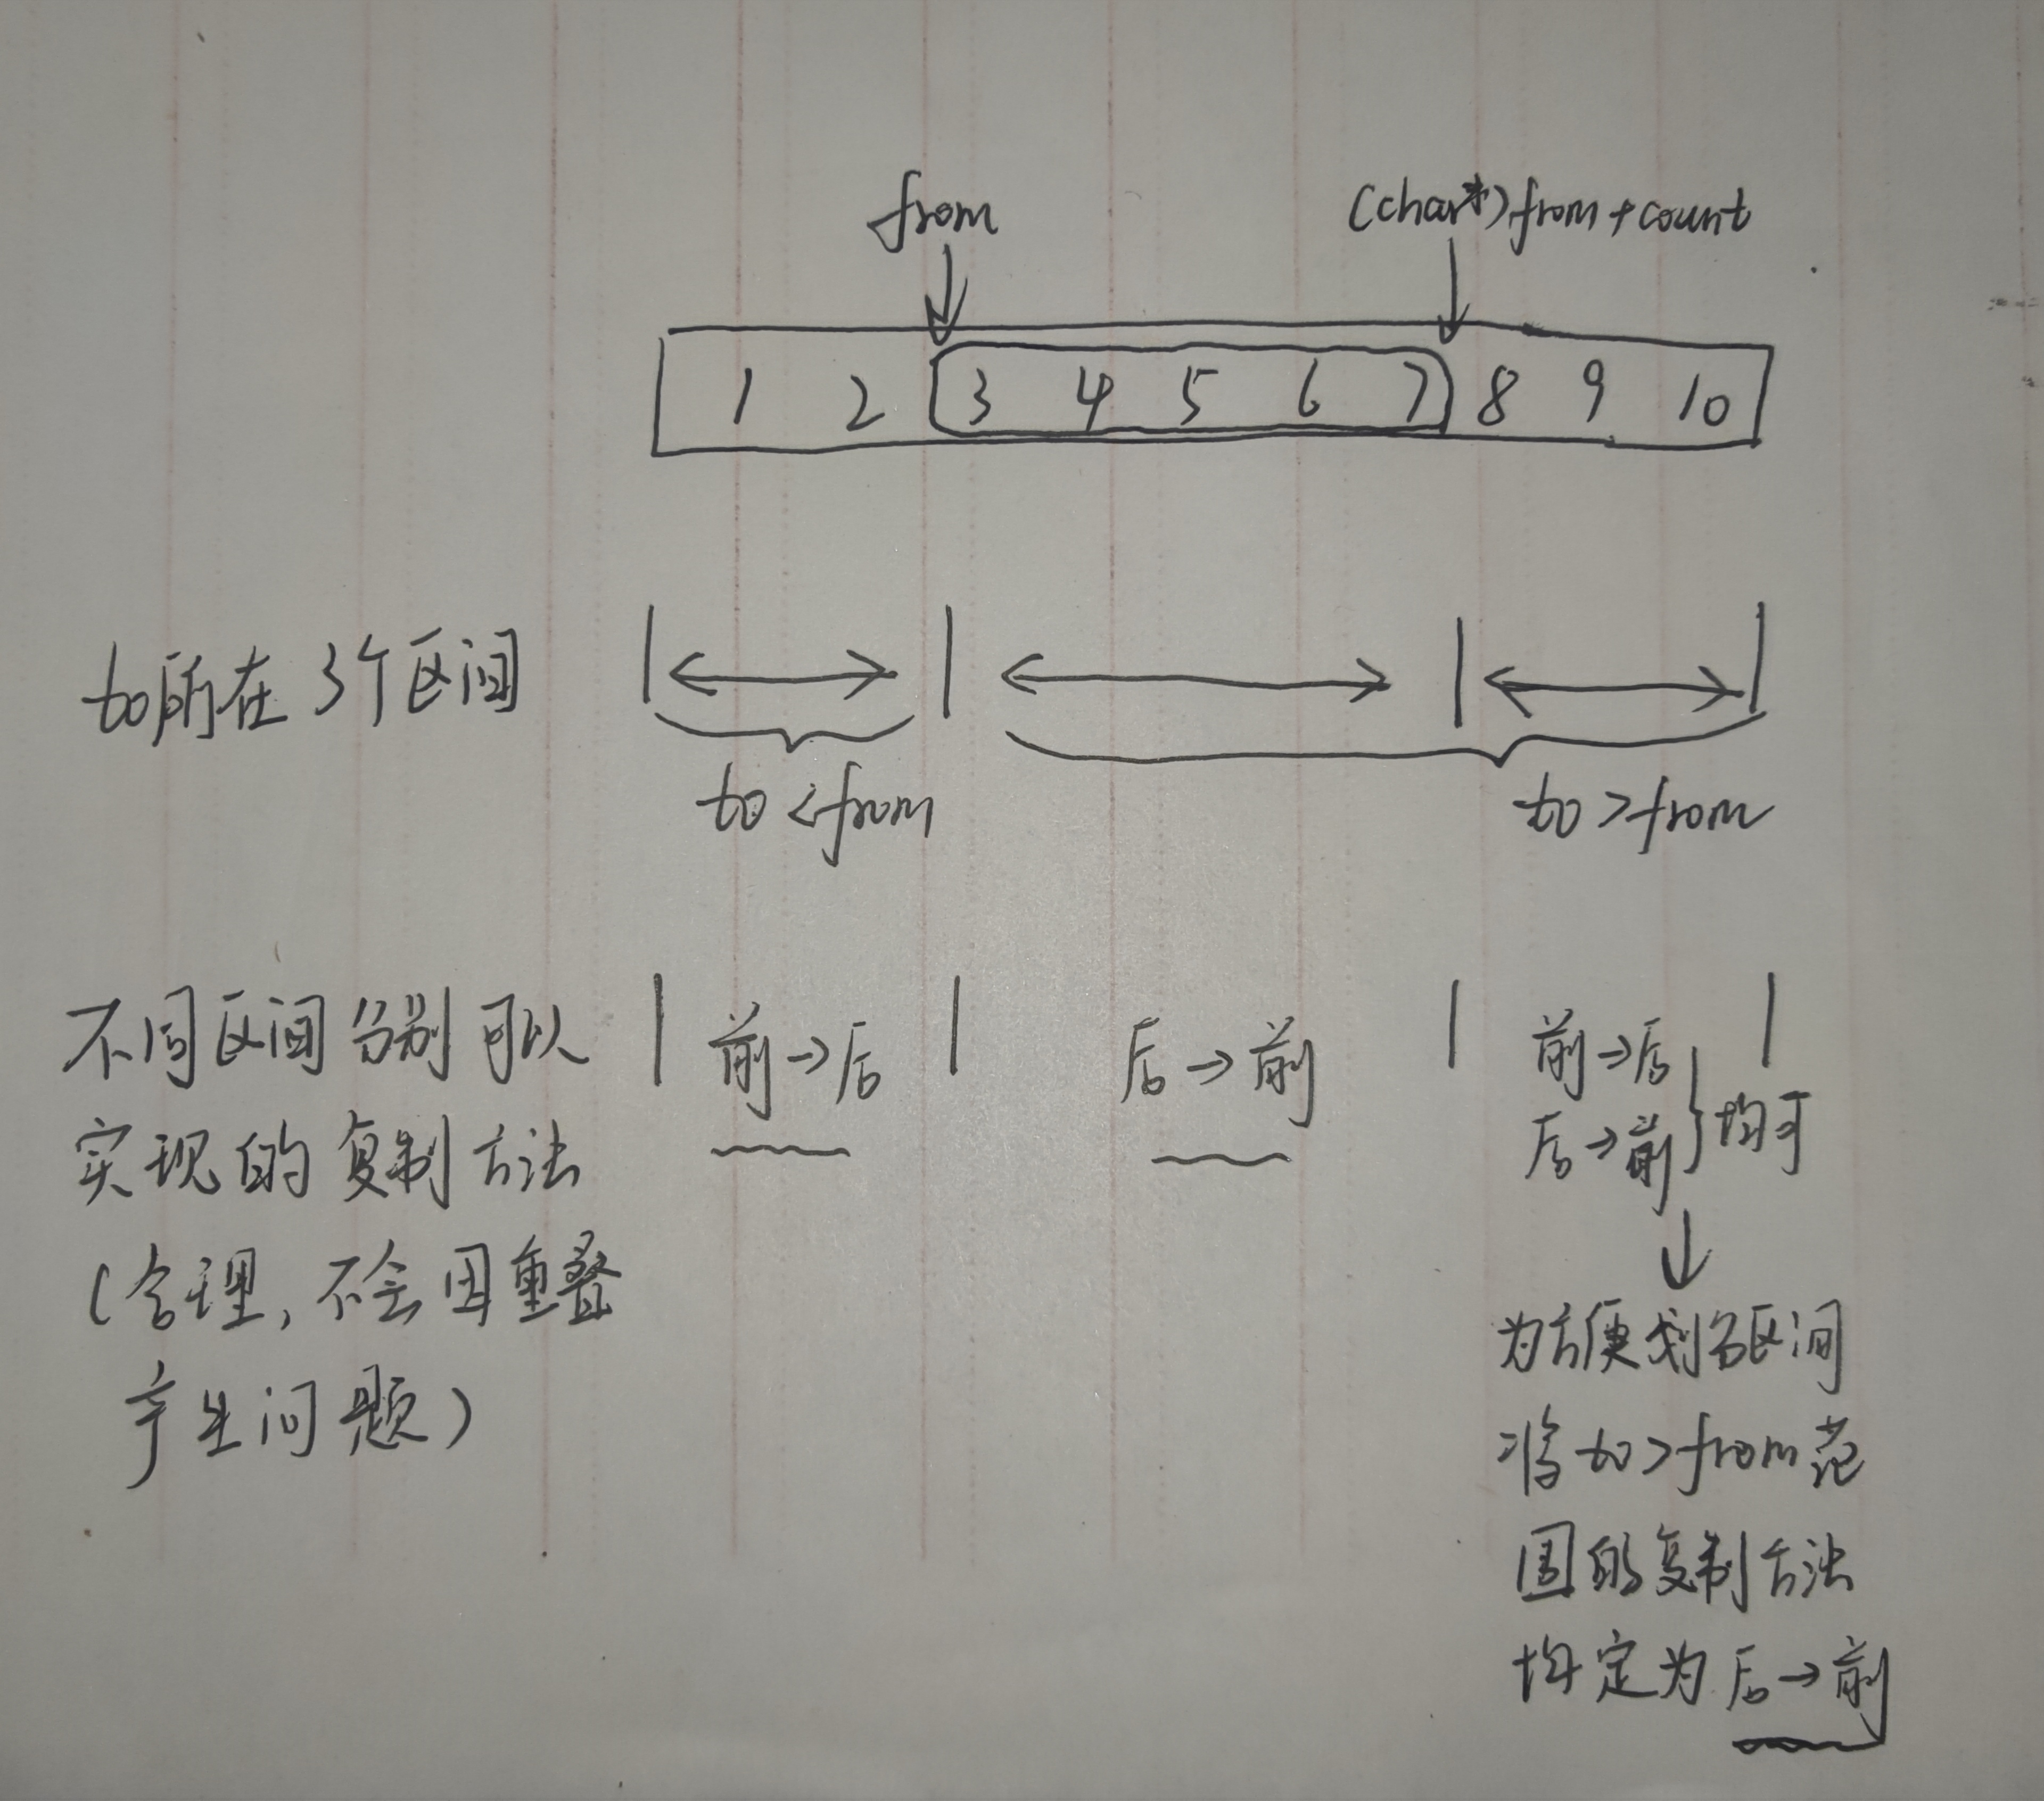 from
(char*)from+count
1 2 3 4 5 6 7 8 9 10
to所在3个区间
to<from
to>from
不同区间分别可以
实现的复制方法
(合理,不会因重叠
产生问题)
前→后
后→前
前→后
后→前
均可
为方便划分区间
将to>from范
围的复制方法
均定为后→前